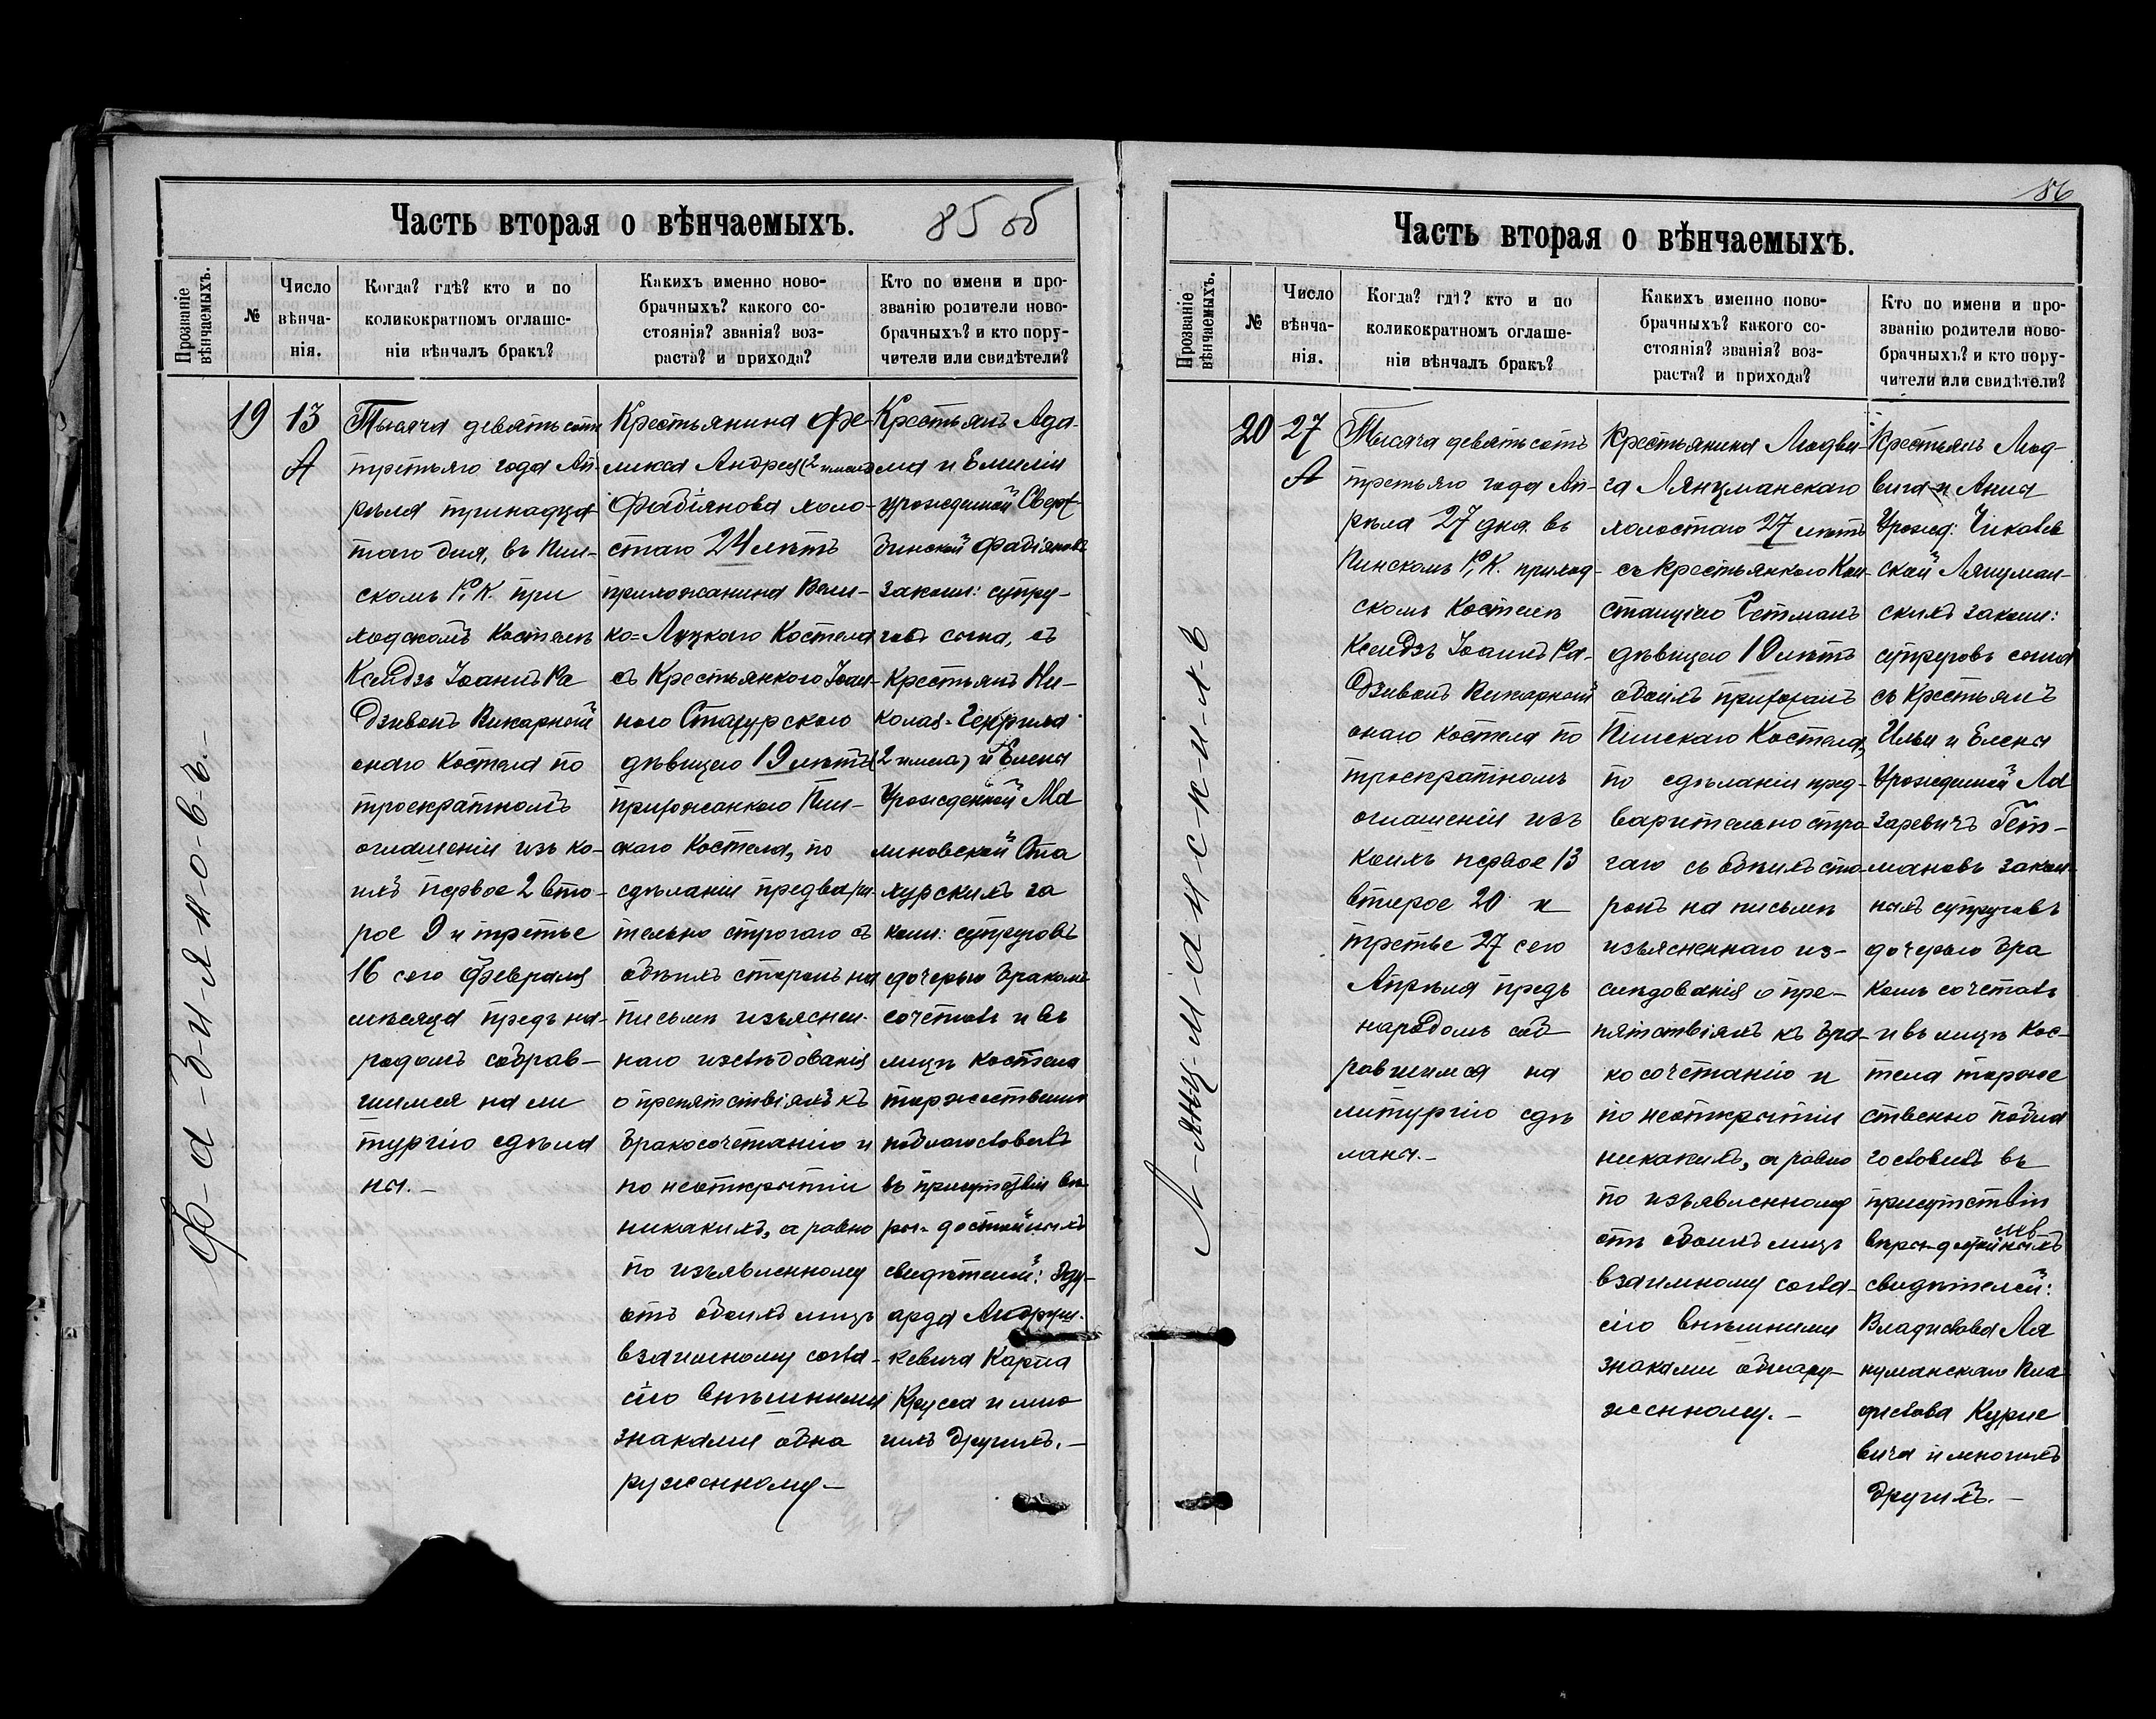 Часть вторая о вѣнчаемыхъ.
85 об
Прозваніе вѣнчаемыхъ.
№
Число вѣнча-
нія.
Когда? гдѣ? кто и по
коликократномъ оглаше-
ніи вѣнчалъ бракъ?
Какихъ именно ново-
брачныхъ? какого со-
стоянія? званія? воз-
раста? и прихода?
Кто по имени и про-
званію родители ново-
брачныхъ? и кто пору-
чители или свидѣтели?
Ф-а-б-і-я-н-о-в-ъ.-
19
13
А
Тысяча девятьсотъ
третьяго года Ап-
рѣля тринадца-
таго дня, въ Пин-
скомъ Р. К. при
ходскомъ костелѣ
Ксендзъ Іоаннъ Ра
дзивонъ Викарный
онаго Костела по
троекратномъ
оглашеніи изъ ко-
ихъ первое 2 вто-
рое 9 и третье
16 сего Февраля
мѣсяца предъ на-
родомъ собрав-
шимся на ли
тургію сдѣла
ны.-
Крестьянина Фе-
ликса Андрея (2 имени)
Фабіянова холо-
стаго 24 лѣтъ
прихожанина Вели-
ко=Луцкаго Костела
съ Крестьянкою Іоан-
ною Стахурскою
дѣвицею 19 лѣтъ
прихожанкою Пин-
скаго Костела, по
сдѣланіи предвари
тельно строгаго съ
обѣихъ сторонъ на
письмѣ изъяснен-
наго изслѣдованія
о препятствіяхъ къ
бракосочетанію и
по неоткрытіи
никакихъ, а равно
по изъявленному
отъ обоихъ лицъ
взаимному согла-
сію внѣшними
знаками обна
руженному-
Крестьянъ Ада-
ма и Емиліи
урожденной
Фабіяновъ
законн: супру-
говъ сына, съ
Крестьянъ Ни-
колая-
(2 имена) и Елены
Урожденной Ма
линовской Ста
хурскихъ за
конн: супруговъ
дочерью бракомъ
сочеталъ и въ
лицѣ костела
торжественно
поблагословилъ
въ присутствіи вѣ
ры-достойныхъ
свидѣтелей: Эду-
арда Андруш-
кевича Карпа
Круса и мно
гихъ другихъ.-
86
Часть вторая о вѣнчаемыхъ.
Прозваніе вѣнчаемыхъ.
№
Число вѣнча-
нія.
Когда? гдѣ? кто и по
коликократномъ оглаше-
ніи вѣнчалъ бракъ?
Какихъ именно ново-
брачныхъ? какого со-
стоянія? званія? воз-
раста? и прихода?
Кто по имени и про-
званію родители ново-
брачныхъ? и кто пору-
чители или свидѣтели?
Л-янц-м-а-н-с-к-и-х-ъ
20
27
А
Тысяча девятьсотъ
третьяго года Ап-
рѣля 27 дня въ
Пинскомъ Р. К. приход-
скомъ Костелѣ
Ксендзъ Іоаннъ Ра-
дзивонъ Викарный
онаго Костела по
троекратномъ
оглашеніи изъ
коихъ первое 13
второе 20 и
третье 27 сего
Апрѣля предъ
народомъ соб
равшимся на
литургію сдѣ
ланы.-
Крестьянина Людви-
га Лянцманскаго
холостаго 27 лѣтъ
съ крестьянкою Кон-
станціею Гетманъ
дѣвицею 19 лѣтъ
обоихъ прихожанъ
Пинскаго Костела,
по сдѣланіи пред-
варительно стро-
гаго съ обѣихъ сто-
ронъ на письмѣ
изъясненнаго из-
слѣдованія о пре-
пятствіяхъ къ бра-
косочетанію и
по неоткрытіи
никакихъ, а равно
по изъявленному
отъ обоихъ лицъ
взаимному согла-
сію внѣшними
знаками обнару-
женному.-
Крестьянъ Люд-
вига и Анны
Урожд: Чиковс-
ской Лянцман-
скихъ законн:
супруговъ сына
съ Крестьянъ
Ильи и Елены
Урожденной Ла
заревичъ Гет-
мановъ закон-
ныхъ супруговъ
дочерью бра
комъ сочеталъ
и въ лицѣ Кос-
тела торже
ственно побла
гословилъ въ
присутствіи
вѣры-достойныхъ
свидѣтелей:
Владислава Ля
нцманскаго
Курие
вича и многихъ
другихъ.-